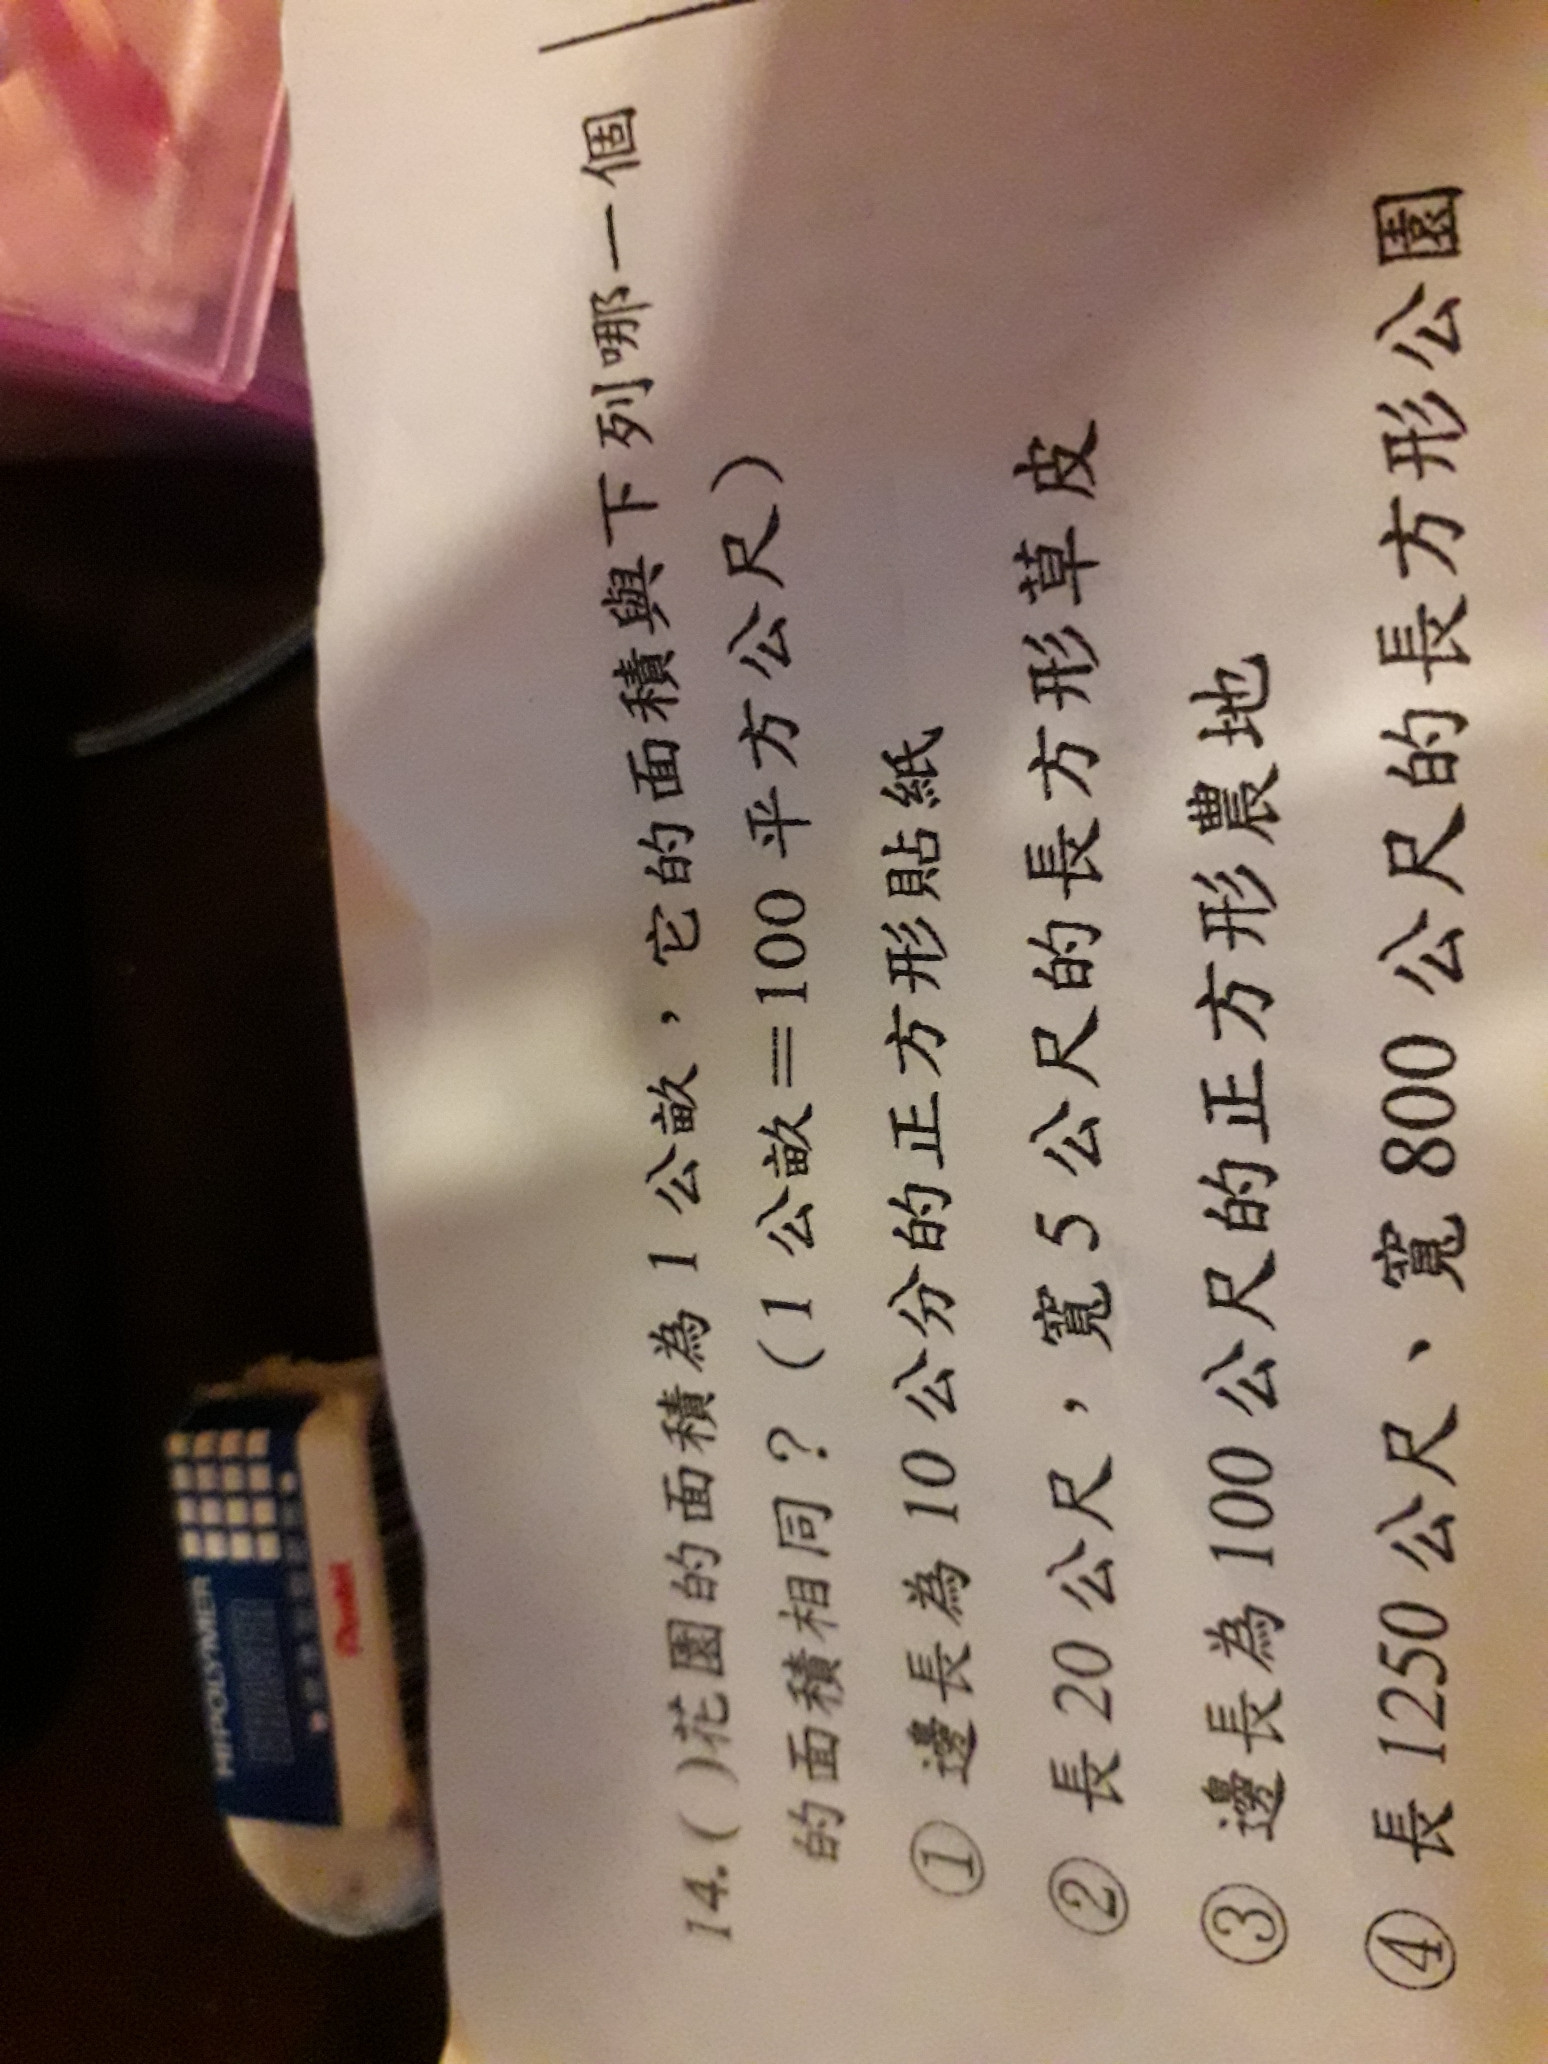 14.( )花園的面積為 1 公畝，它的面積與下列哪一個
的面積相同？（1 公畝＝100 平方公尺）
① 邊長為 10 公分的正方形貼紙
② 長 20 公尺，寬 5 公尺的長方形草皮
③ 邊長為 100 公尺的正方形農地
④ 長 1250 公尺、寬 800 公尺的長方形公園
HI-POLYMER
Pentel